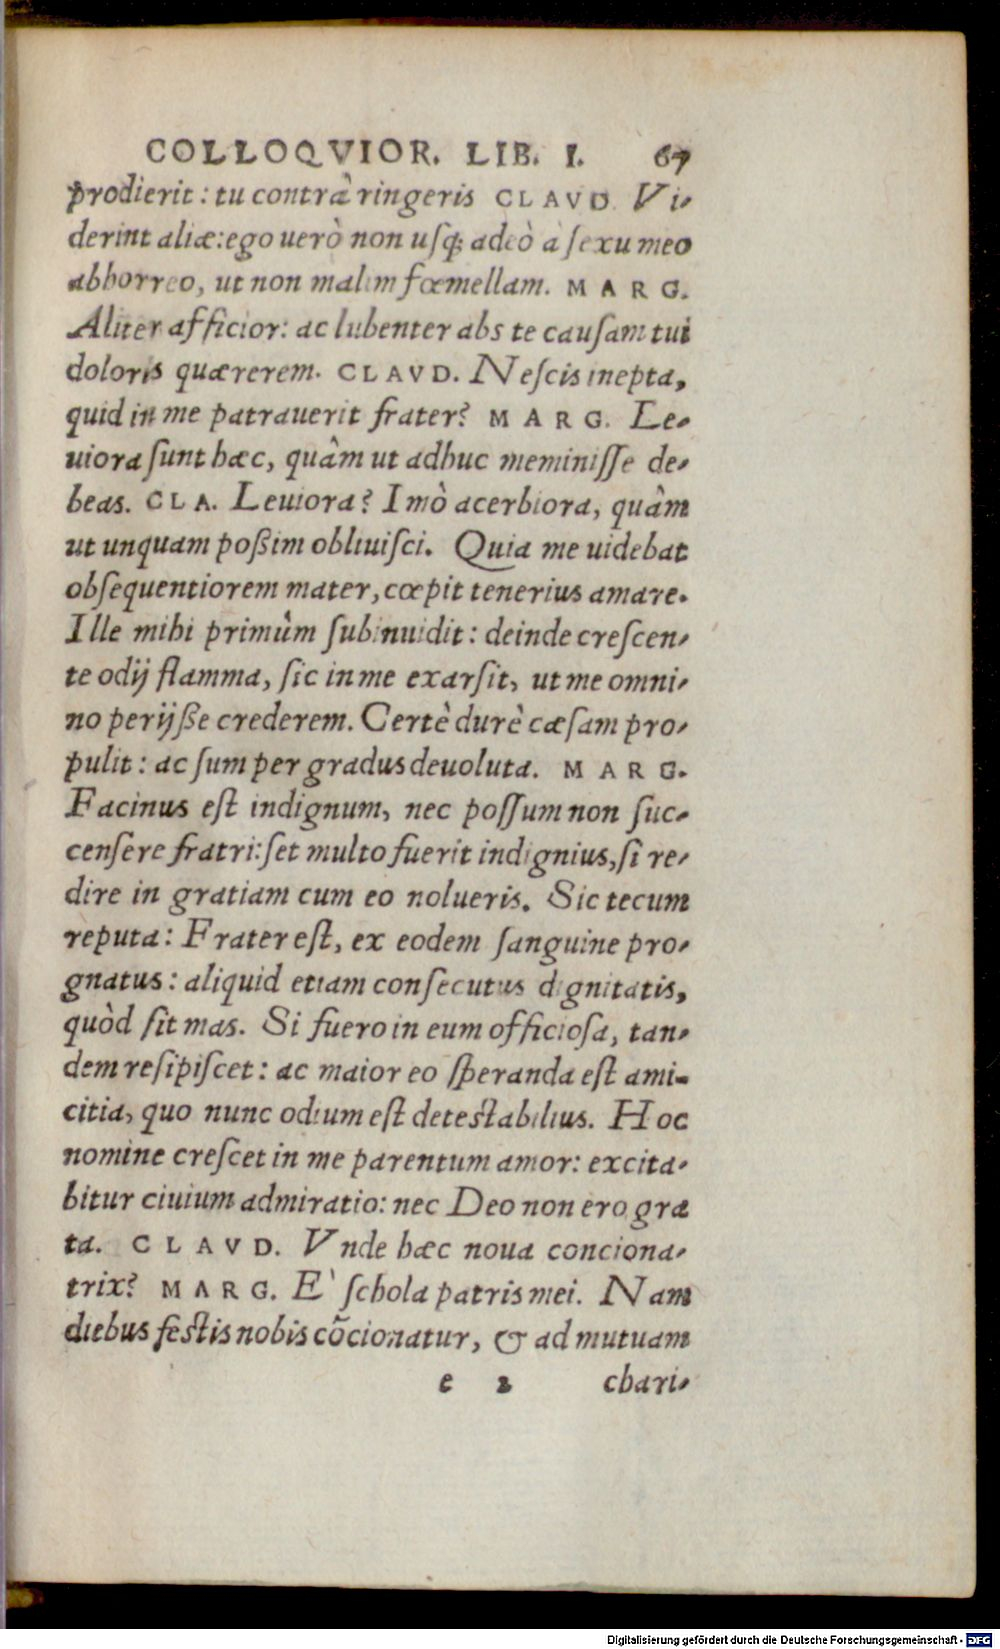 COLLOQVIOR. LIB. I. 67
prodierit: tu contrà ringeris CLAVD. Vi-
derint aliæ: ego uerò non usq; adeò à sexu meo
abhorreo, ut non malim fœmellam. MARG.
Aliter afficior: ac lubenter abs te causam tui
doloris quærerem. CLAVD. Nescis inepta,
quid in me patrauerit frater? MARG. Le-
uiora sunt hæc, quàm ut adhuc meminisse de-
beas. CLA. Leuiora? Imò acerbiora, quàm
ut unquam poßim obliuisci. Quia me uidebat
obsequentiorem mater, cœpit tenerius amare.
Ille mihi primùm subinuidit: deinde crescen-
te odij flamma, sic in me exarsit, ut me omni-
no perijße crederem. Certè durè cæsam pro-
pulit: ac sum per gradus deuoluta. MARG.
Facinus est indignum, nec possum non suc-
censere fratri: set multo fuerit indignius, si re-
dire in gratiam cum eo nolueris. Sic tecum
reputa: Frater est, ex eodem sanguine pro-
gnatus: aliquid etiam consecutus dignitatis,
quòd sit mas. Si fuero in eum officiosa, tan-
dem resipiscet: ac maior eo speranda est ami-
citia, quo nunc odium est detestabilius. Hoc
nomine crescet in me parentum amor: excita-
bitur ciuium admiratio: nec Deo non ero gra
ta. CLAVD. Vnde hæc noua conciona-
trix? MARG. E` schola patris mei. Nam
diebus festis nobis cōcionatur, & ad mutuam
e 2 chari-
Digitalisierung gefördert durch die Deutsche Forschungsgemeinschaft - DFG